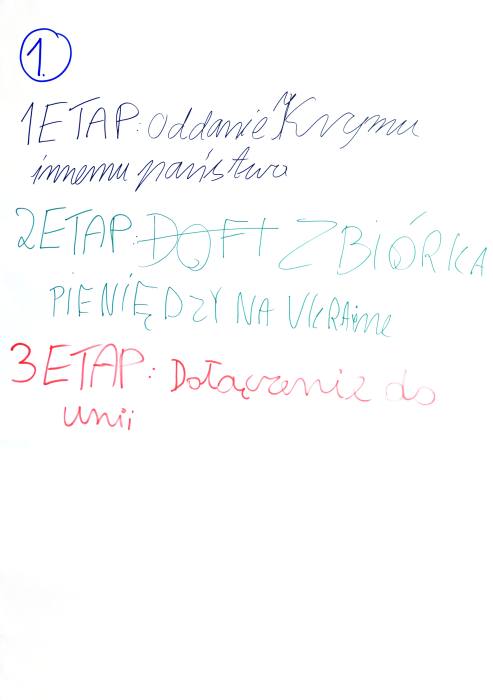 1.
1 ETAP: oddanie Krymu
innemu państwo
2 ETAP: ZBIÓRKA
PIENIĘDZY NA UKRAine
3 ETAP: Dołączenie do
unii